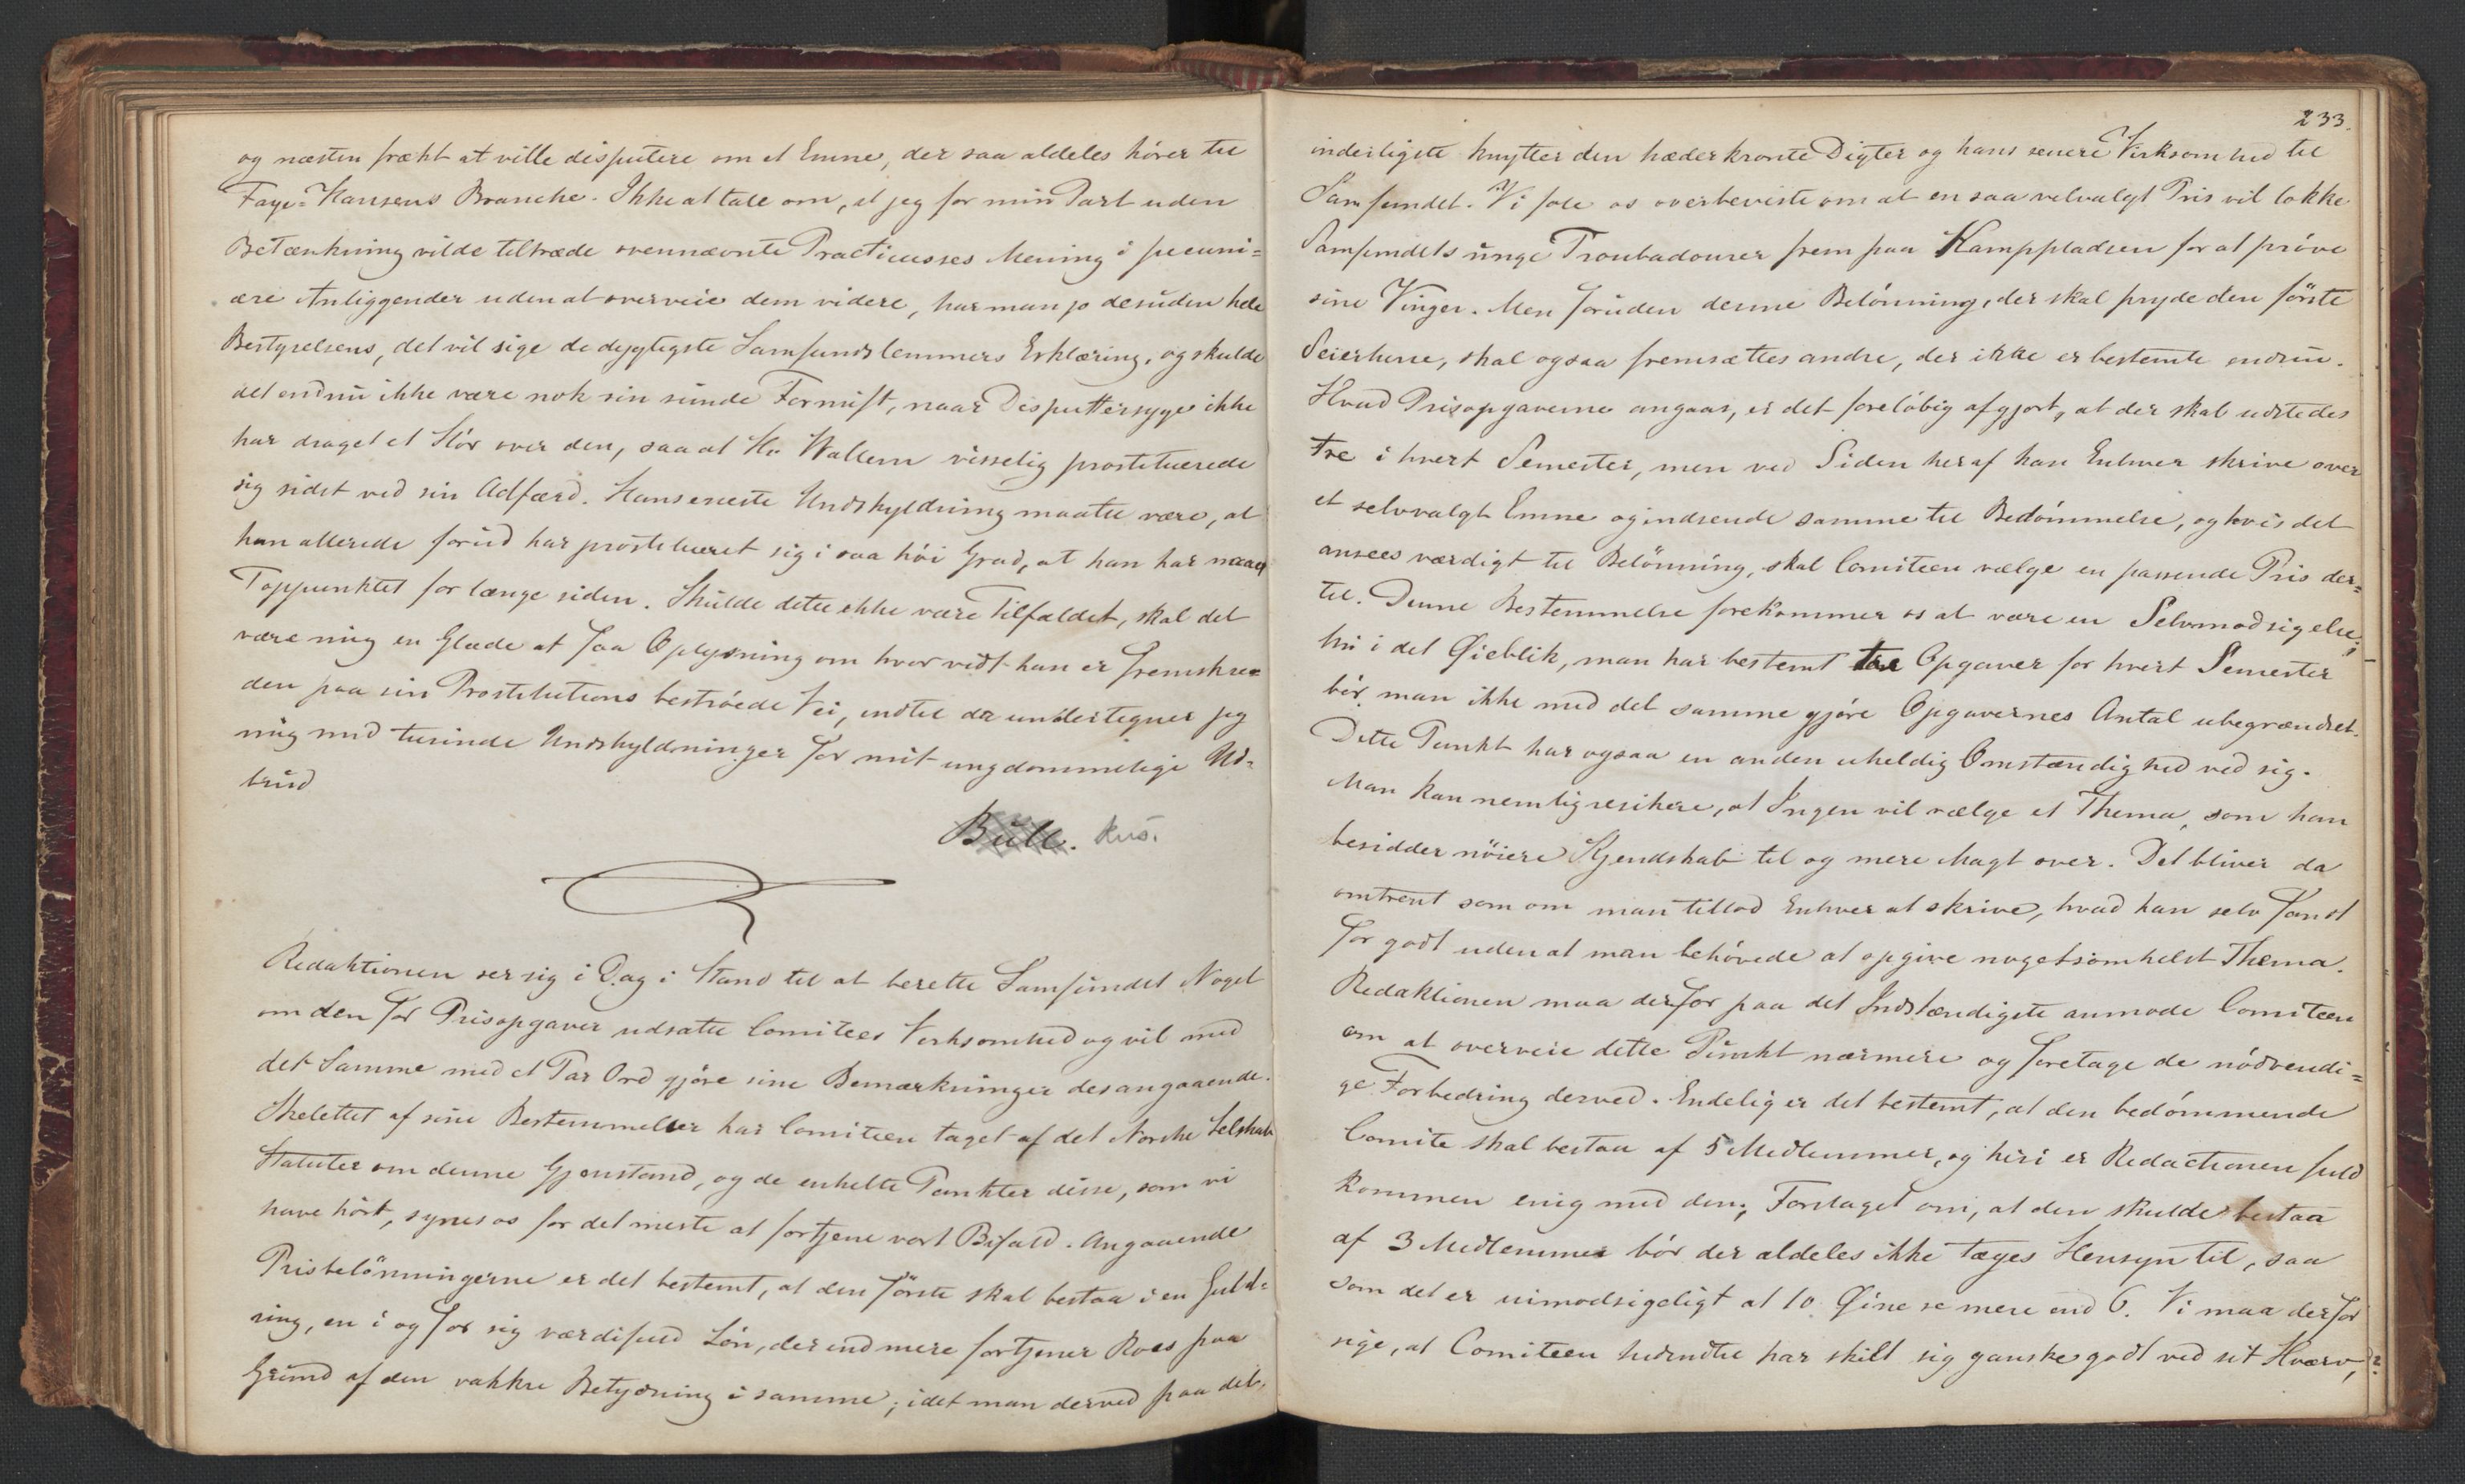 og næsten frækt at ville disputere om et Emne, der saa aldeles hörer til
Faye-Hansens Branche. Ikke at tale om, at jeg for min Part uden
Betænkning vilde tiltræde ovennævnte Practicusses Mening i pecuni=
ære Anliggender uden at overveie dem videre, har man jo desuden hele
Bestyrelsens, det vil sige de dygtigste Samfundslemmers Erklæring, og skulde
det endnu ikke være nok sin sunde Fornuft, naar Disputtersyge ikke
har draget et Slör over den, saa at Hr. Wallem visselig prostituerede
sig sidst ved sin Adfærd. Hans eneste Undskyldning maatte være, at
han allerede forud har prostitueret sig i saa höi Grad, at han har naaet
Toppunktet for længe siden. Skulde dette ikke være Tilfældet, skal det
være mig en Glæde at faa Oplysning om hvor vidt han er fremskre=
den paa sin Prostitutions beströede Vei, indtil da undertegner jeg
mig med tusinde Undskyldninger for mit ungdommelige Ud=
brud
Bull. Rus.
Redaktionen ser sig i Dag i Stand til at berette Samfundet Noget
om den for Prisopgaver udsatte Comitees Virksomhed og vil med
det Samme med et Par Ord gjöre sine Bemærkninger desangaaende.
Skelettet af sine Bestemmelser har Comiteen taget af det Norske Selskab
Statuter om denne Gjenstand, og de enkelte Punkter disse, som vi
have hört, synes os for det meste at fortjene vort Bifald. Angaaende
Prisbelönningerne er det bestemt, at den förste skal bestaa i en Guld=
ring, en i og for sig værdifuld Lön, der end mere fortjener Roes paa
Grund af den vakkre Betydning i samme; idet man derved paa det
233.
inderligste knytter den hæderkronte Digter og hans senere Virksomhed til
Samfundet. Vi föle os overbeviste om at en saa velvalgt Pris vil lokke
Samfundets unge Troubadourer frem paa Kamppladsen for at pröve
sine Vinger. Men foruden denne Belönning, der skal pryde den förste
Seierherre, skal ogsaa fremsættes andre, der ikke er bestemte endnu.
Hvad Prisopgaverne angaar, er det forelöbig afgjort, at der skal udstedes
tre i hvert Semester, men ved Siden heraf kan Enhver skrive over
et selvvalgt Emne og indsende samme til Bedömmelse, og hvis det
ansees værdigt til Belönning, skal Comiteen vælge en passende Pris der=
til. Denne Bestemmelse forekommer os at være en Selvmodsigelse;
thi i det Øieblik, man har bestemt tre Opgaver for hvert Semester
bör man ikke med det samme gjöre Opgavernes Antal ubegrændset.
Dette Punkt har ogsaa en anden uheldig Omstændighed ved sig.
Man kan nemlig resikere, at Ingen vil vælge et Thema, som han
besidder nöiere Kjendskab til og mere Magt over. Det bliver da
omtrent som om man tillod Enhver at skrive, hvad han selv fandt
for godt uden at man behövede at opgive nogetsomhelst Thema.
Redaktionen maa derfor paa det Indstændigste anmode Comiteen
om at overveie dette Punkt nærmere og foretage de nödvendi=
ge Forbedring derved. Endelig er det bestemt, at den bedömmende
Comite skal bestaa af 5 Medlemmer, og heri er Redactionen fuld
kommen enig med den; Forslaget om, at den skulde bestaa
af 3 Medlemmer bör der aldeles ikke tages Hensyn til, saa
som det er uimodsigeligt at 10 Øine se mere end 6. Vi maa derfor
sige, at Comiteen hidindtil har skilt sig ganske godt ved sit Hværv,